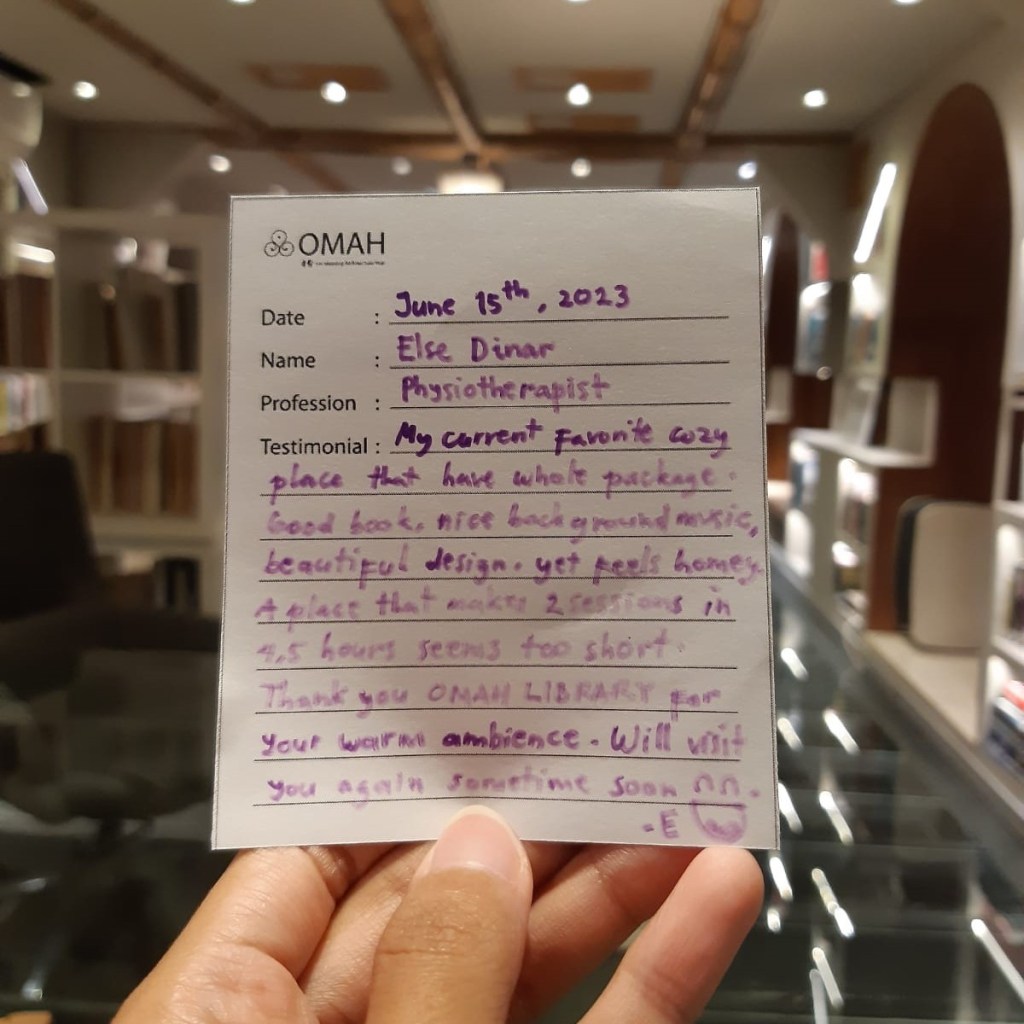 OMAH
Date : June 15th, 2023
Name : Else Dinar
Profession : Physiotherapist
Testimonial : My current favorite cozy
place that have whole package.
Good book, nice background music,
beautiful design. yet feels homey.
A place that makes 2 sessions in
4,5 hours seems too short.
Thank you OMAH LIBRARY for
your warm ambience. Will visit
you again sometime soon
- E